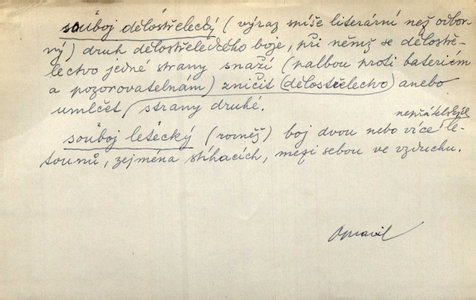 souboj dělostřelecký (výraz spíše literární než odbor-
ný) druh dělostřeleckého boje, při němž se dělostře-
lectvo jedné strany snaží (palbou proti bateriím
a pozorovatelnám) zničit (dělostřelectvo) anebo
umlčet / strany druhé.
nepřátelských
souboj letecký (rovněž) boj dvou nebo více le-
tounů, zejména stíhacích, mezi sebou ve vzduchu.